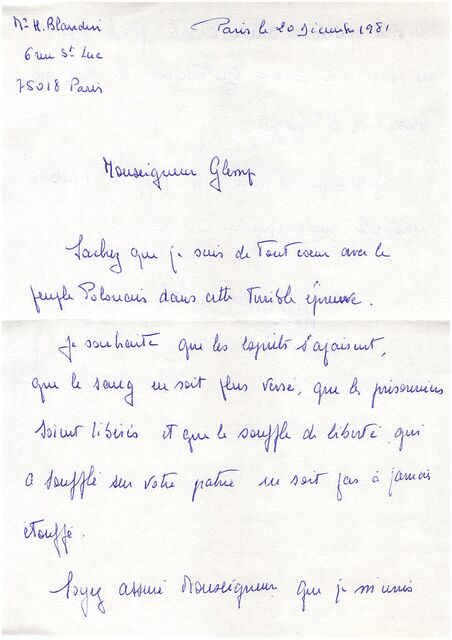 Mr H. Blandin
6 rue St Luc
75018 Paris
Paris le 20 Décembre 1981
Monseigneur Glemp
Sachez que je suis de tout coeur avec le
peuple Polonais dans cette terrible épreuve.
Je souhaite que les esprits s'apaisent,
que le sang ne soit plus versé, que les prisonniers
soient libérés et que le souffle de liberté qui
a soufflé sur votre patrie ne soit pas à jamais
étouffé.
Soyez assuré Monseigneur que je m'unis